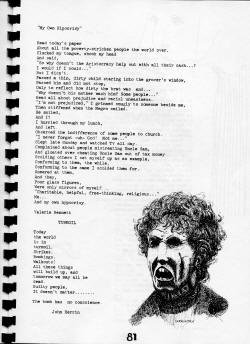 "My Own Hipocrisy"
Read today's paper
About all the poverty-stricken people the world over.
Clucked my tongue, shook my head
And said,
"So why doesn't the Aristocracy help out with all their cash...?
I would if I could..."
But I didn't.
Passed a thin, dirty child staring into the grocer's window,
Passed him and did not stop,
Only to reflect how dirty the brat was and...
"Why doesn't his mother wash him? Some people..."
Read all about prejudice and racial uneasiness.
"I'm not prejudiced," I grinned smugly to someone beside me,
Then stiffened when the Negro smiled.
He smiled,
And I?
I hurried through my lunch,
And left.
Observed the indifference of some people to church.
"I never forget God! Not me..."
Slept late Sunday and watched TV all day.
Complained about people mistreating Uncle Sam,
and gloated over cheating Uncle Sam out of tax money
Chiding others I set myself up as an example,
Conforming to them, the while,
Conforming to the same I scolded them for.
Sneered at them,
And they,
Poor glass figures,
Were only mirrors of myself...
"Charitable, helpful, free-thinking, religious..."
Me...
And my own hypocrisy.
Valerie Bennett
TURMOIL
Today
the world
is in
turmoil.
Strikes.
Bombings.
Walkout!
All these things
will build up, and
tomorrow we may all be
dead
Guilty people,
It doesn't matter........
The bomb has no conscience.
John
81